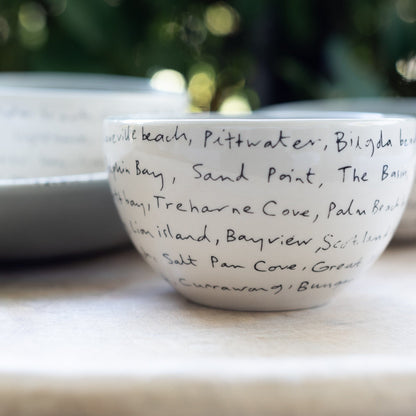 ville beach, Pittwater, Bilgola bea
Bay, Sand Point, The Basin
bay, Treharne Cove, Palm Beach
Lion island, Bayview, Scotland
Salt Pan Cove, Great
Currawong, Bungan